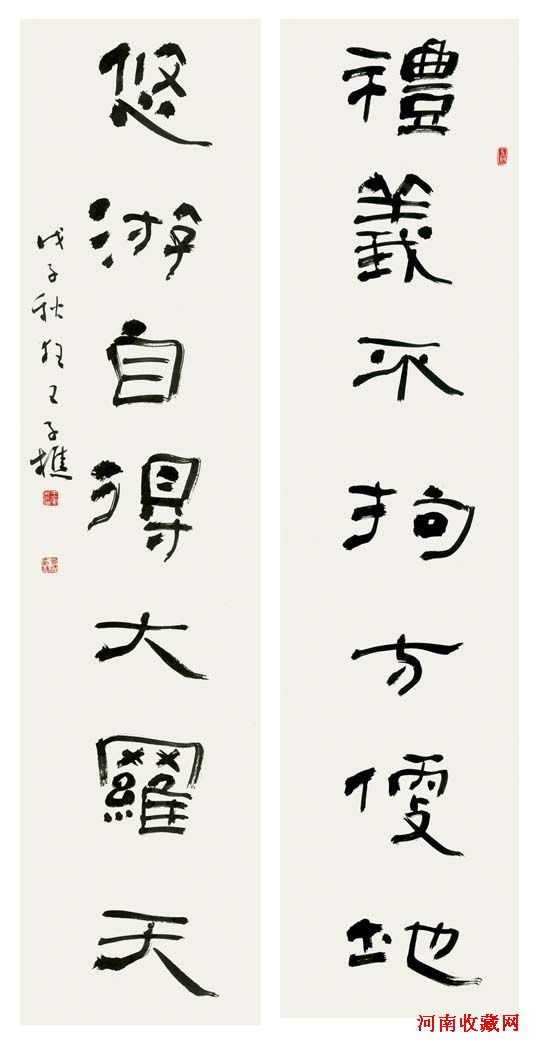 禮義不拘方便地
悠游自得大羅天
戊子秋狂王子樵
河南收藏网